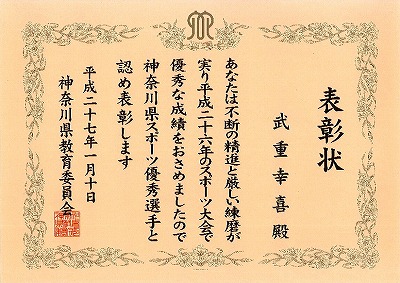 表彰状
武重幸喜殿
あなたは不断の精進と厳しい練磨が
実り平成二十六年のスポーツ大会で
優秀な成績をおさめましたので
神奈川県スポーツ優秀選手と
認め表彰します
平成二十七年一月十日
神奈川県教育委員会